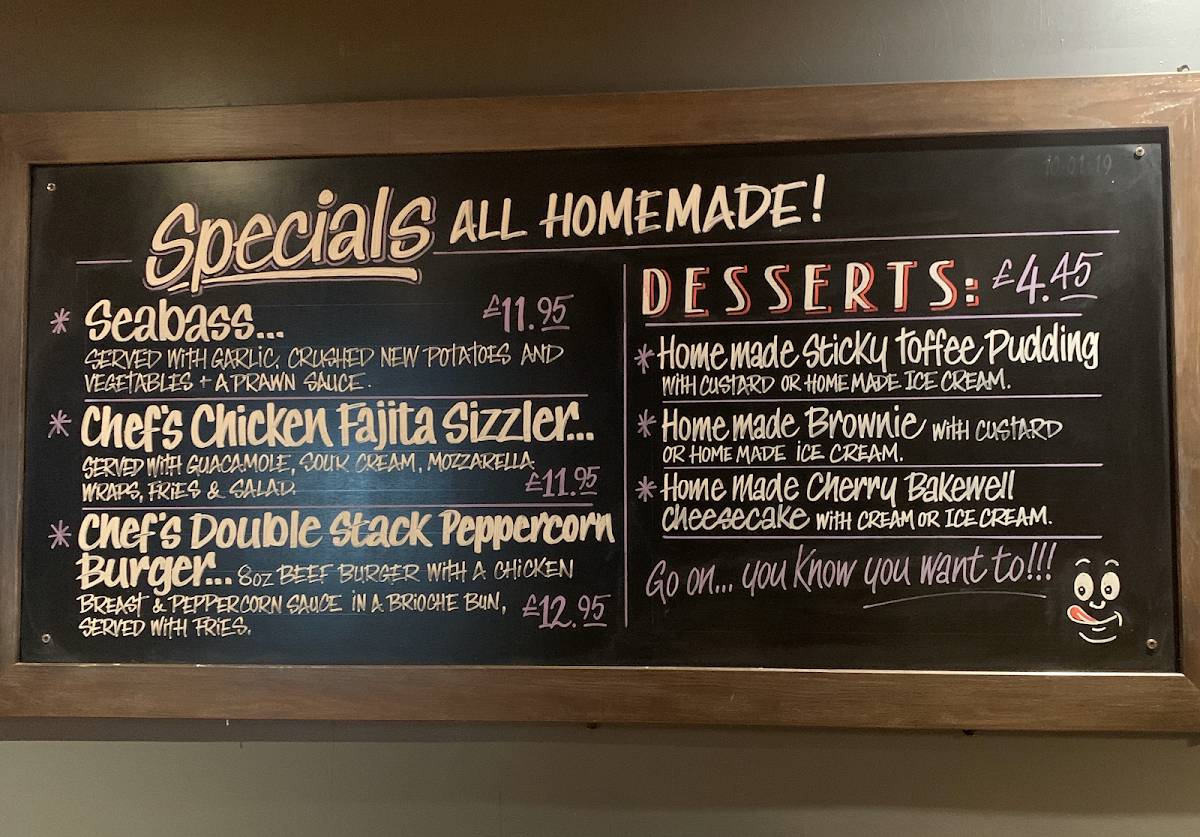 10.01.19
Specials ALL HOMEMADE!
* Seabass... £11.95
SERVED WITH GARLIC, CRUSHED NEW POTATOES AND
VEGETABLES + A PRAWN SAUCE.
* Chef's Chicken Fajita Sizzler...
SERVED WITH GUACAMOLE, SOUR CREAM, MOZZARELLA
WRAPS, FRIES & SALAD. £11.95
* Chef's Double Stack Peppercorn
Burger... 8oz BEEF BURGER WITH A CHICKEN
BREAST & PEPPERCORN SAUCE IN A BRIOCHE BUN,
SERVED WITH FRIES. £12.95
DESSERTS: £4.45
* Home made Sticky Toffee Pudding
WITH CUSTARD OR HOME MADE ICE CREAM.
* Home made Brownie WITH CUSTARD
OR HOME MADE ICE CREAM.
* Home Made Cherry Bakewell
Cheesecake WITH CREAM OR ICE CREAM.
Go on... you know you want to!!!